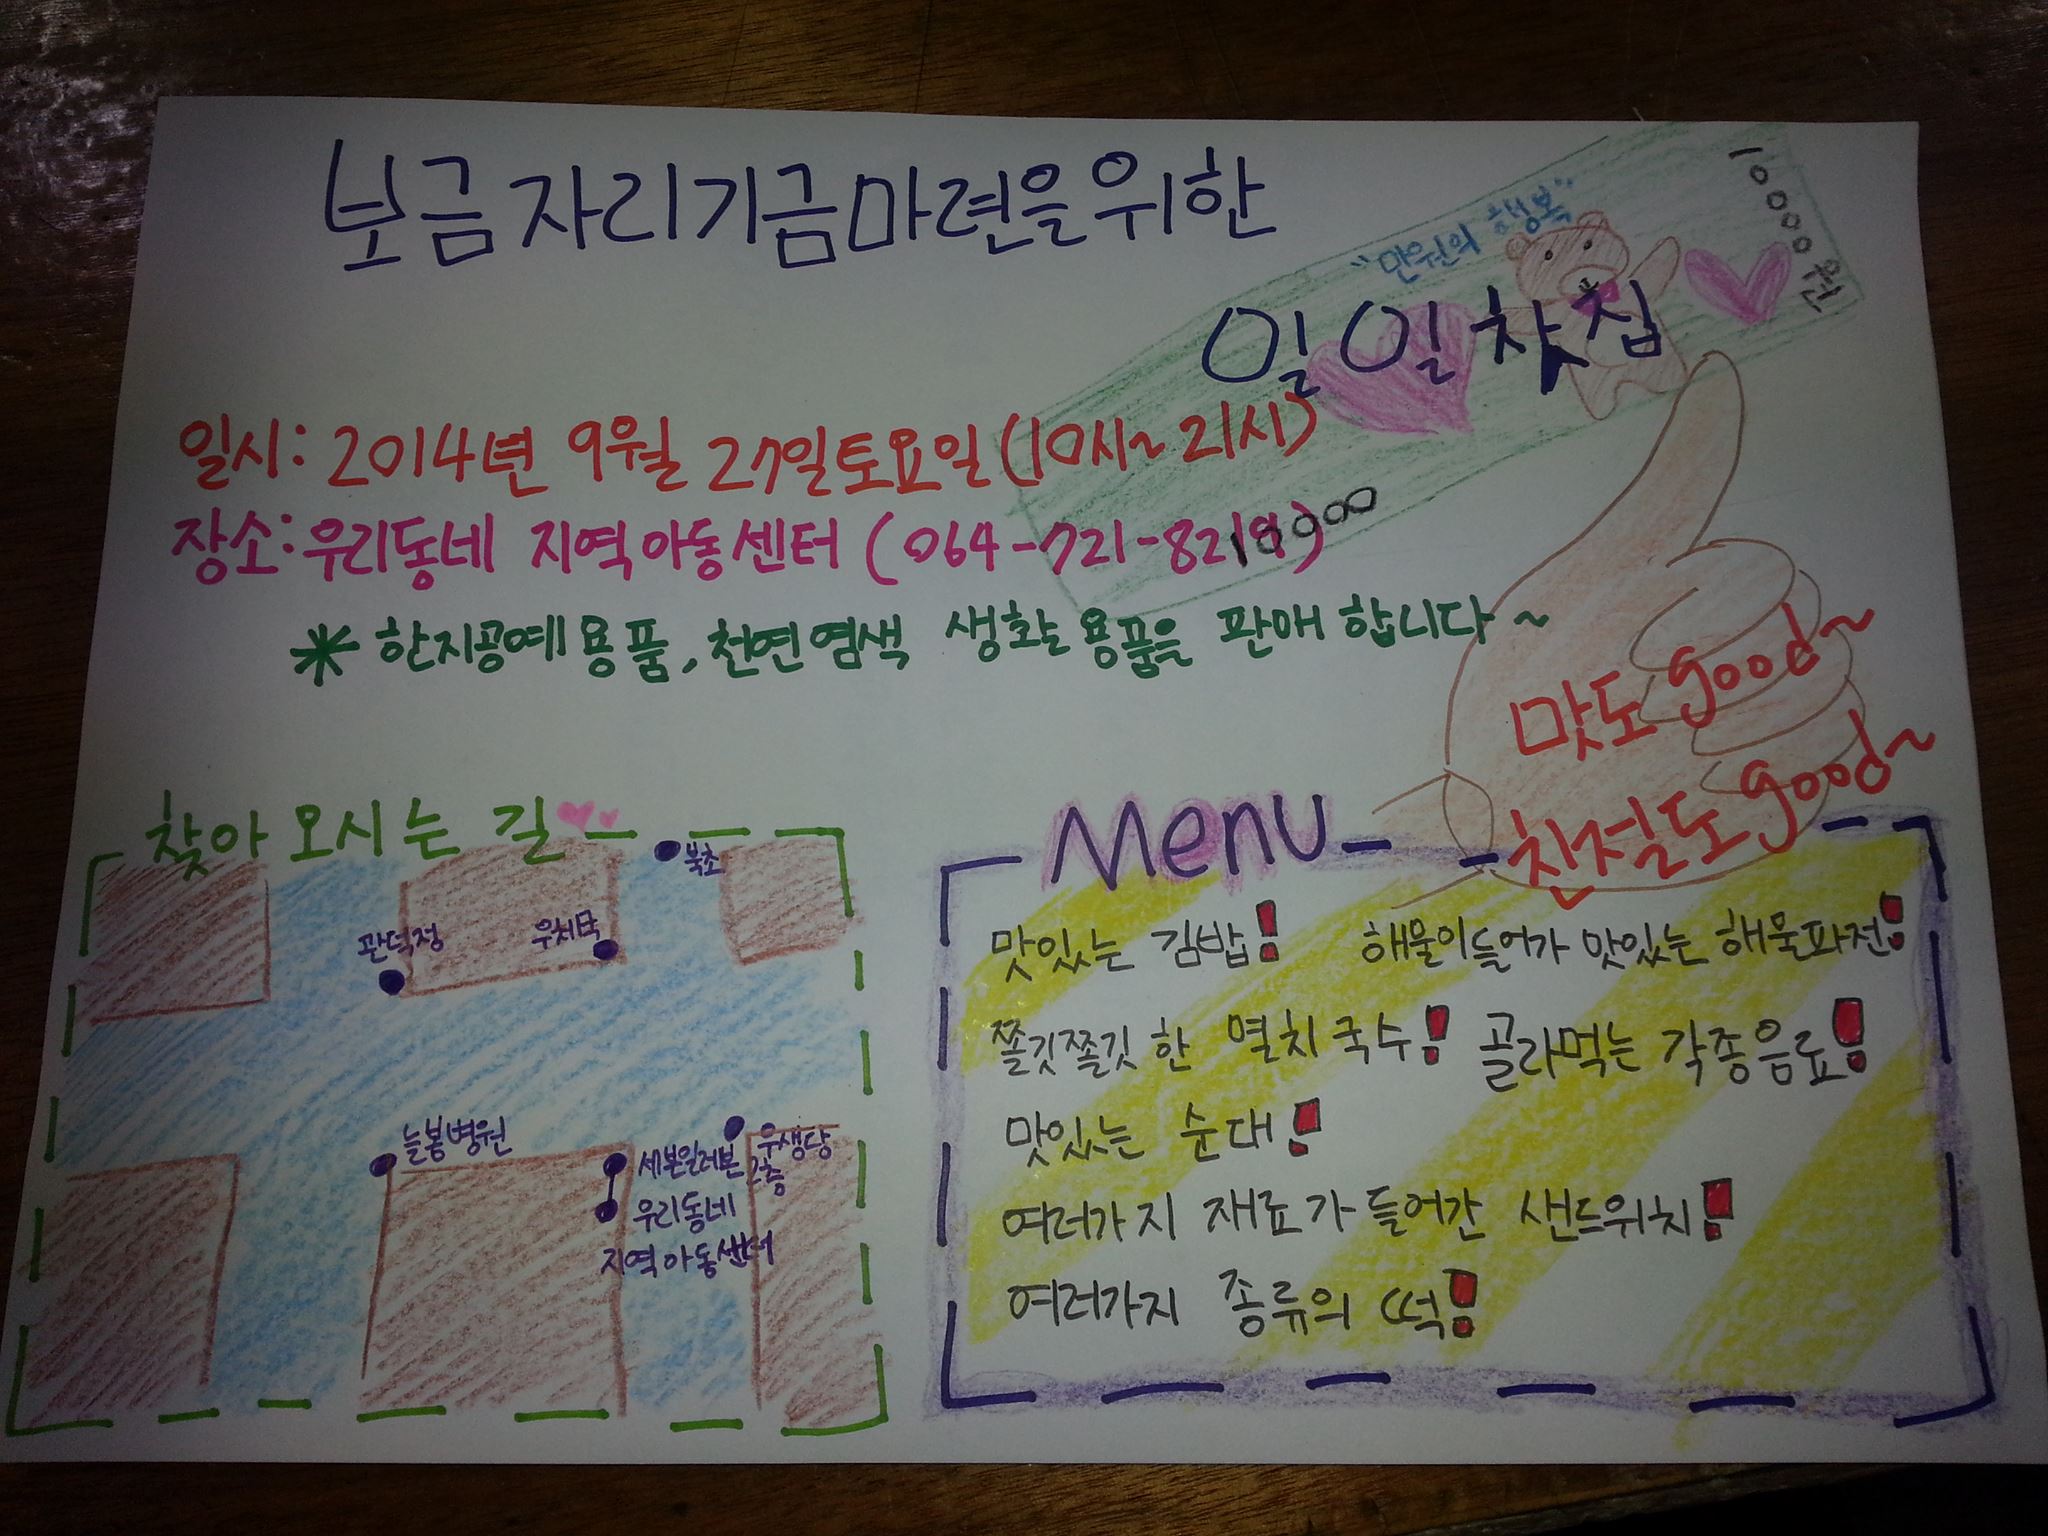 보금자리기금마련을위한
"만원의 행복"
10000원
일일찻집
일시: 2014년 9월 27일토요일(10시~21시)
장소:우리동네 지역아동센터 (064-721-8219)
10000
* 한지공예용품,천연염색 생활용품을 판매합니다~
맛도 good~
친절도 good~
찾아오시는 길
북초
관덕정
우체국
늘봄병원
세븐일레븐
우생당
2층
우리동네
지역아동센터
Menu
맛있는 김밥! 해물이들어가 맛있는 해물파전!
쫄깃쫄깃한 멸치국수! 골라먹는 각종음료!
맛있는 순대!
여러가지 재료가 들어간 샌드위치!
여러가지 종류의 떡!